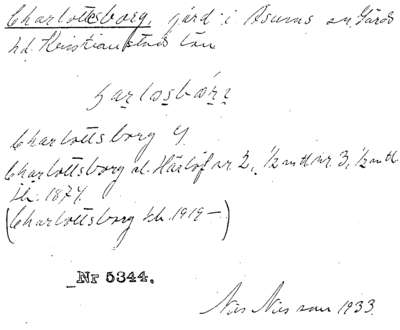 Charlottesborg, gård i Åsums sn. Gärds
hd. Kristianstads län
Charlottsborg
Charlottsborg al. Härlöf nr 2, ½ mtl nr. 3, ½ mtl
Jb. 1874.
(Charlottsborg Jb. 1919—)
Nr 5344.
Nils Nilsson 1933.